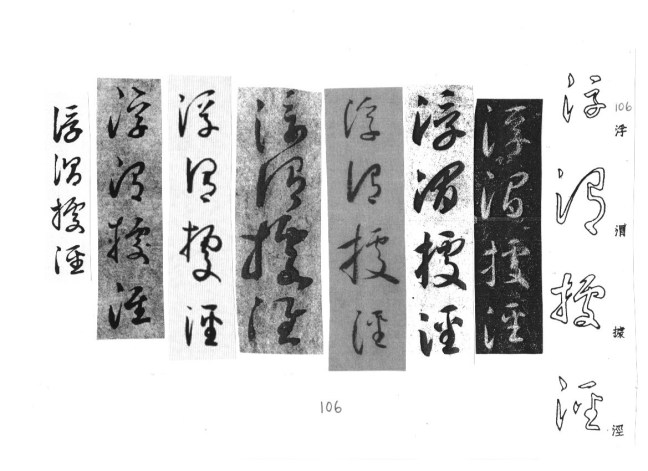 106
浮渭據涇
浮渭據涇
浮渭據涇
浮渭據涇
浮渭據涇
浮渭據涇
浮渭據涇
浮渭據涇
浮渭據涇
106